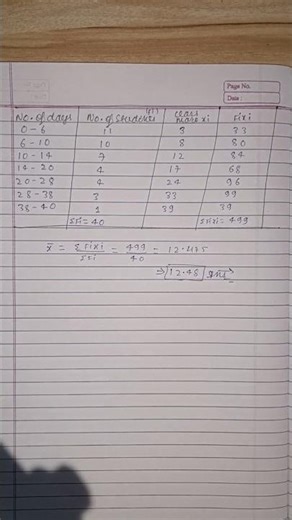 Page No.
Date :
No. of days No. of Students (fi) Class marks xi fixi
0-6 11 3 33
6-10 10 8 80
10-14 7 12 84
14-20 4 17 68
20-28 4 24 96
28-38 3 33 99
38-40 1 39 39
Σfi = 40 Σfixi = 499
x̄ = Σfixi/Σfi = 499/40 = 12.475
⇒ 12.48 Ans